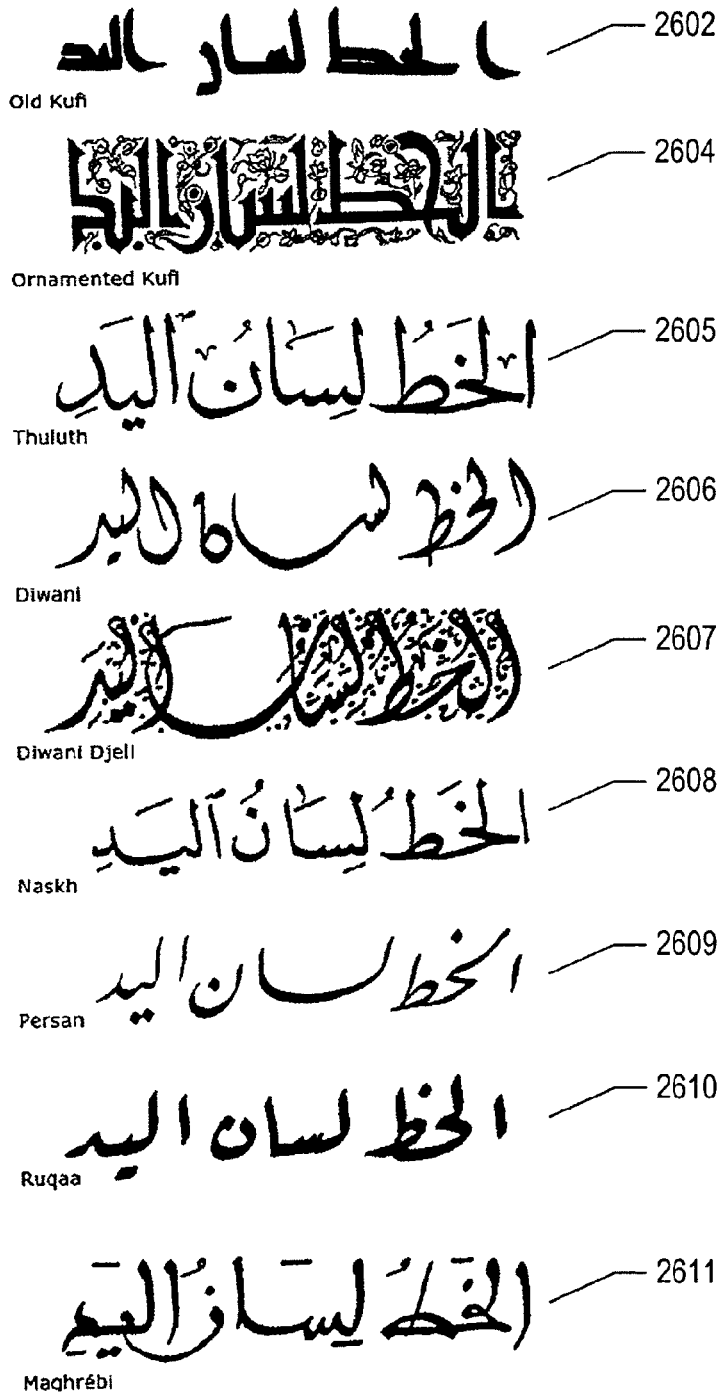 الخط لسان اليد 2602
Old Kufi
الخط لسان اليد 2604
Ornamented Kufi
الخَطُّ لِسَانُ ٱليَدِ 2605
Thuluth
الخط لسان اليد 2606
Diwani
الخط لسان اليد 2607
Diwani Djeli
الخَطُ لِسَانُ ٱليَدِ 2608
Naskh
الخط لسان اليد 2609
Persan
الخط لسان اليد 2610
Ruqaa
الخَطُ لِسَانُ اليَدِ 2611
Maghrébi